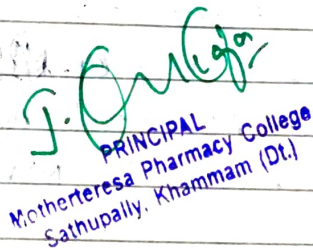 PRINCIPAL
Motherteresa Pharmacy College
Sathupally, Khammam (Dt.)